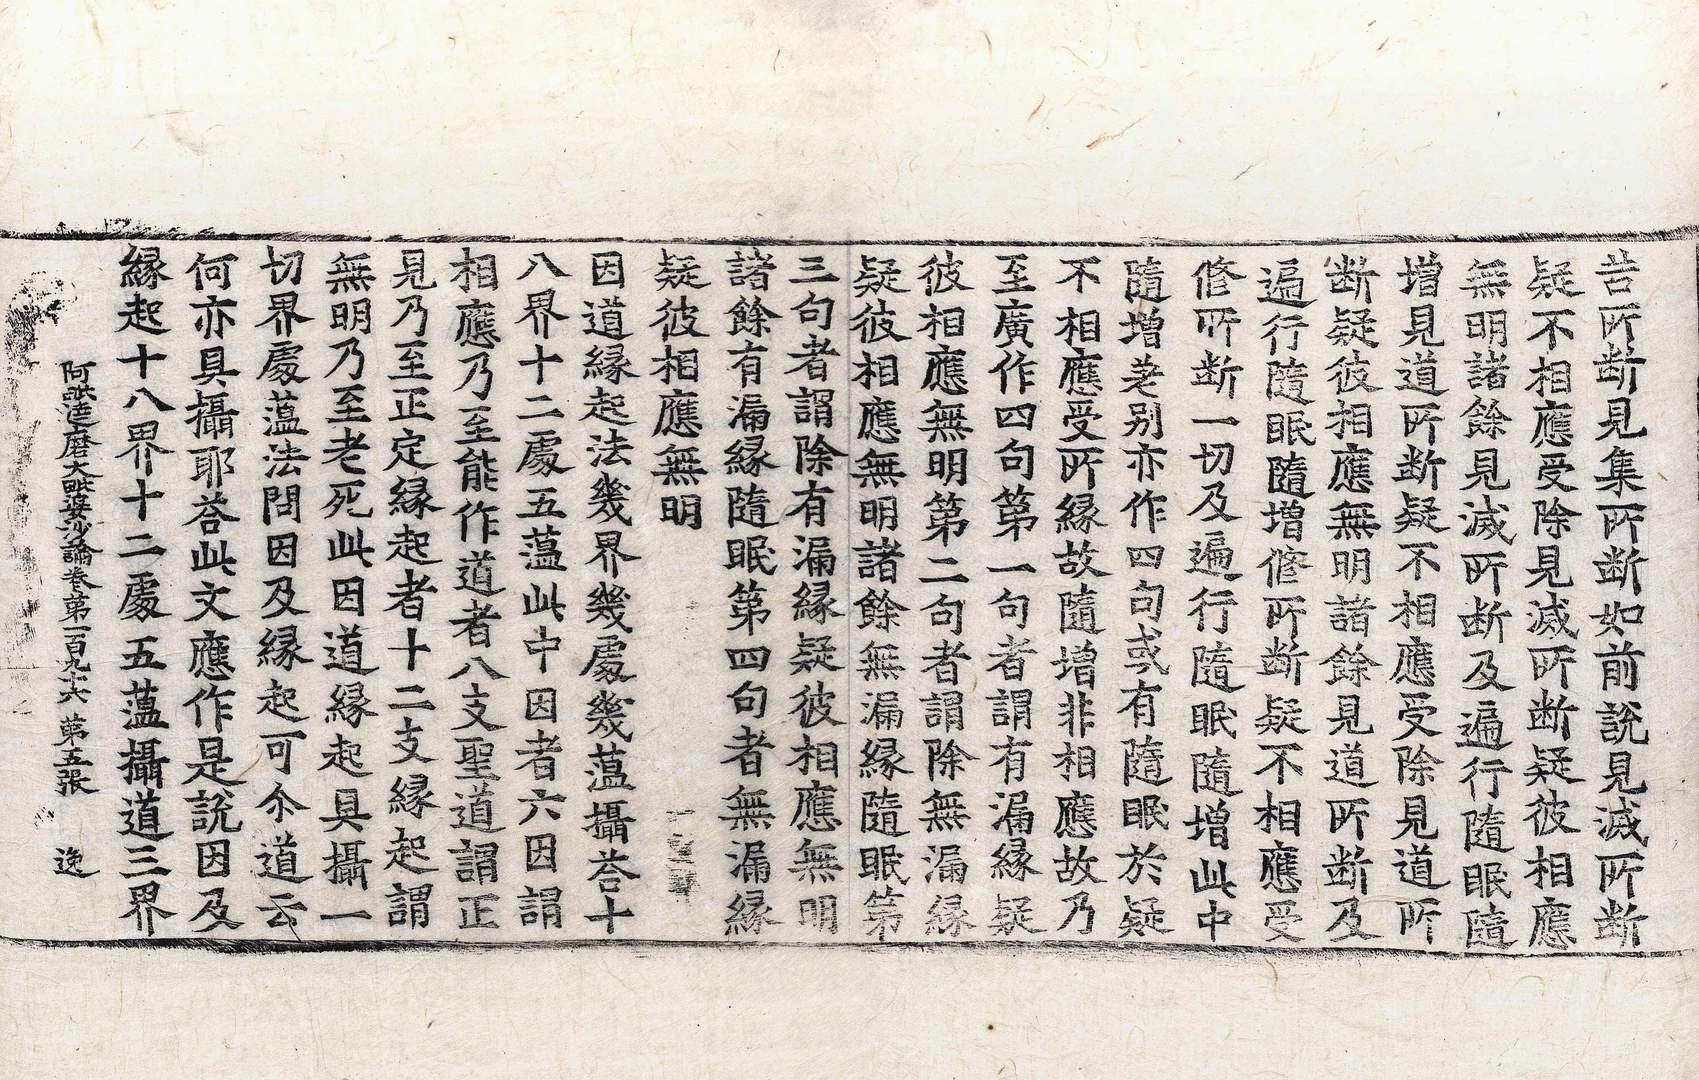 苦所断見集所断如前說見滅所断
疑不相應受除見滅所断疑彼相應
無明諸餘見滅所断及遍行隨眠隨
增見道所断疑不相應受除見道所
断疑彼相應無明諸餘見道所断及
遍行隨眠隨增修所断疑不相應受
修所断一切及遍行隨眠隨增此中
隨增差别亦作四句或有隨眠於疑
不相應受所縁故隨增非相應故乃
至廣作四句第一句者謂有漏縁疑
彼相應無明第二句者謂除無漏縁
疑彼相應無明諸餘無漏縁隨眠第
三句者謂除有漏縁疑彼相應無明
諸餘有漏縁隨眠第四句者無漏縁
疑彼相應無明
因道縁起法幾界幾處幾薀攝荅十
八界十二處五薀此中因者六因謂
相應乃至能作道者八支聖道謂正
見乃至正定縁起者十二支縁起謂
無明乃至老死此因道縁起具攝一
切界處薀法問因及縁起可尒道云
何亦具攝耶荅此文應作是說因及
縁起十八界十二處五薀攝道三界
阿毗達磨大毗婆沙論卷第一百九十六 第五張 逸